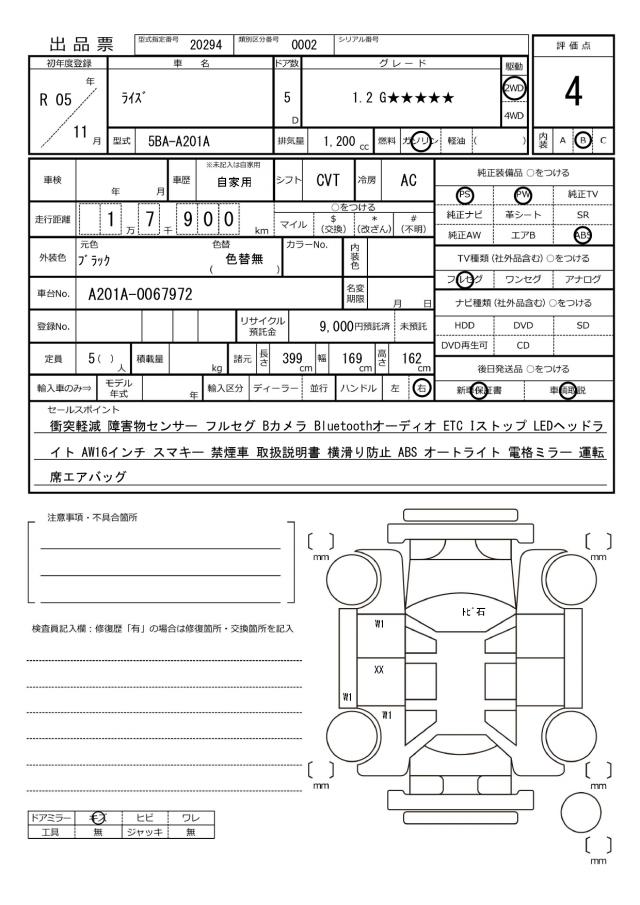 出品票 型式指定番号 20294 類別区分番号 0002 シリアル番号
初年度登録 車名 ドア数 グレード 駆動 評価点
R 05 年 11 月 ﾗｲｽﾞ 5 D 1.2 G★★★★★ 2WD 4WD 4
型式 5BA-A201A 排気量 1,200 cc 燃料 ガソリン 軽油 ( ) 内装 A B C
車検 年 月 車歴 ※未記入は自家用 自家用 シフト CVT 冷房 AC
走行距離 1 万 7 千 9 0 0 km ○をつける
マイル $ (交換) * (改ざん) # (不明)
外装色 元色 ﾌﾞﾗｯｸ 色替 ( 色替無 ) カラーNo. 内装色
車台No. A201A-0067972 名変期限 月 日
登録No. リサイクル預託金 9,000円預託済 未預託
定員 5 ( ) 人 積載量 kg 諸元 長さ 399 cm 幅 169 cm 高さ 162 cm
輸入車のみ⇒ モデル年式 年 輸入区分 ディーラー 並行 ハンドル 左 右
純正装備品 ○をつける
PS PW 純正TV
純正ナビ 革シート SR
純正AW エアB ABS
TV種類 (社外品含む) ○をつける
フルセグ ワンセグ アナログ
ナビ種類 (社外品含む) ○をつける
HDD DVD SD
DVD再生可 CD
後日発送品 ○をつける
新車保証書 車輌取説
セールスポイント
衝突軽減 障害物センサー フルセグ Bカメラ Bluetoothオーディオ ETC Iストップ LEDヘッドラ
イト AW16インチ スマキー 禁煙車 取扱説明書 横滑り防止 ABS オートライト 電格ミラー 運転
席エアバッグ
注意事項・不具合箇所
検査員記入欄：修復歴「有」の場合は修復箇所・交換箇所を記入
[ ] mm
[ ] mm
ﾄﾋﾞ石
W1
XX
W1
W1
[ ] mm
[ ] mm
[ ] mm
ドアミラー キズ ヒビ ワレ
工具 無 ジャッキ 無